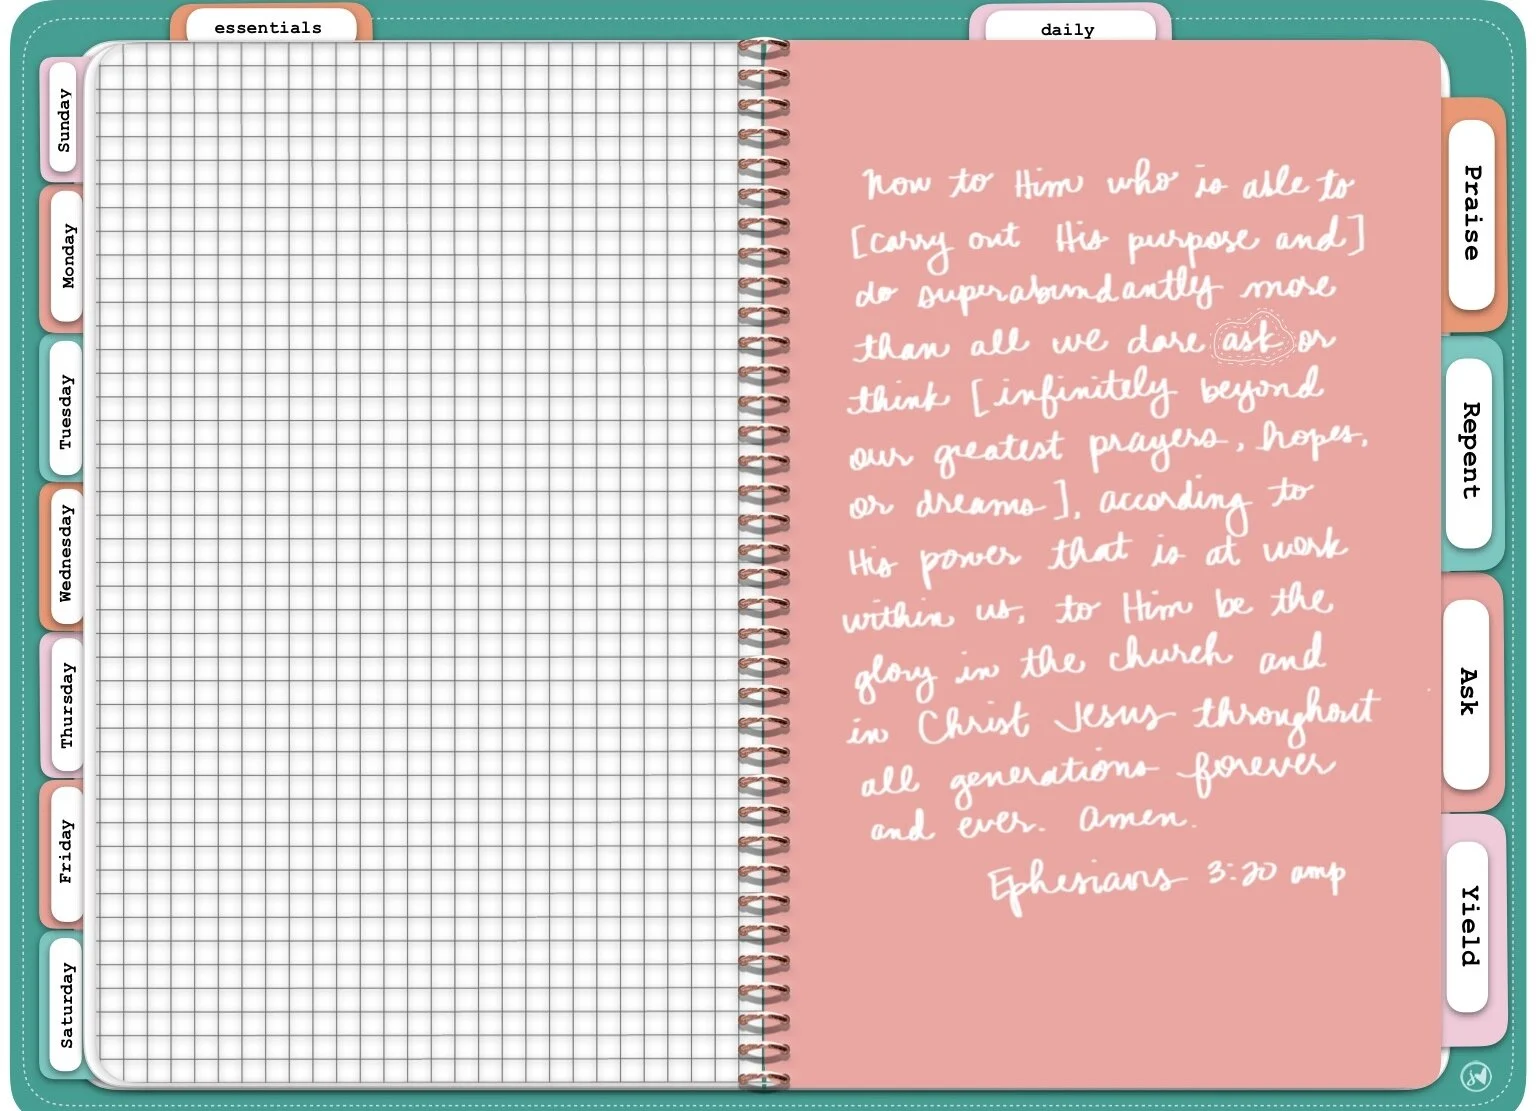 essentials
daily
Sunday
Monday
Tuesday
Wednesday
Thursday
Friday
Saturday
Now to Him who is able to
[carry out His purpose and]
do superabundantly more
than all we dare ask or
think [infinitely beyond
our greatest prayers, hopes,
or dreams], according to
His power that is at work
within us, to Him be the
glory in the church and
in Christ Jesus throughout
all generations forever
and ever. Amen.
Ephesians 3:20 amp
Praise
Repent
Ask
Yield